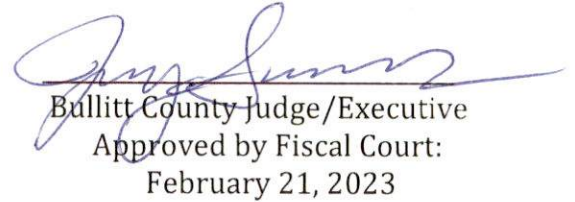 Bullitt County Judge/Executive
Approved by Fiscal Court:
February 21, 2023